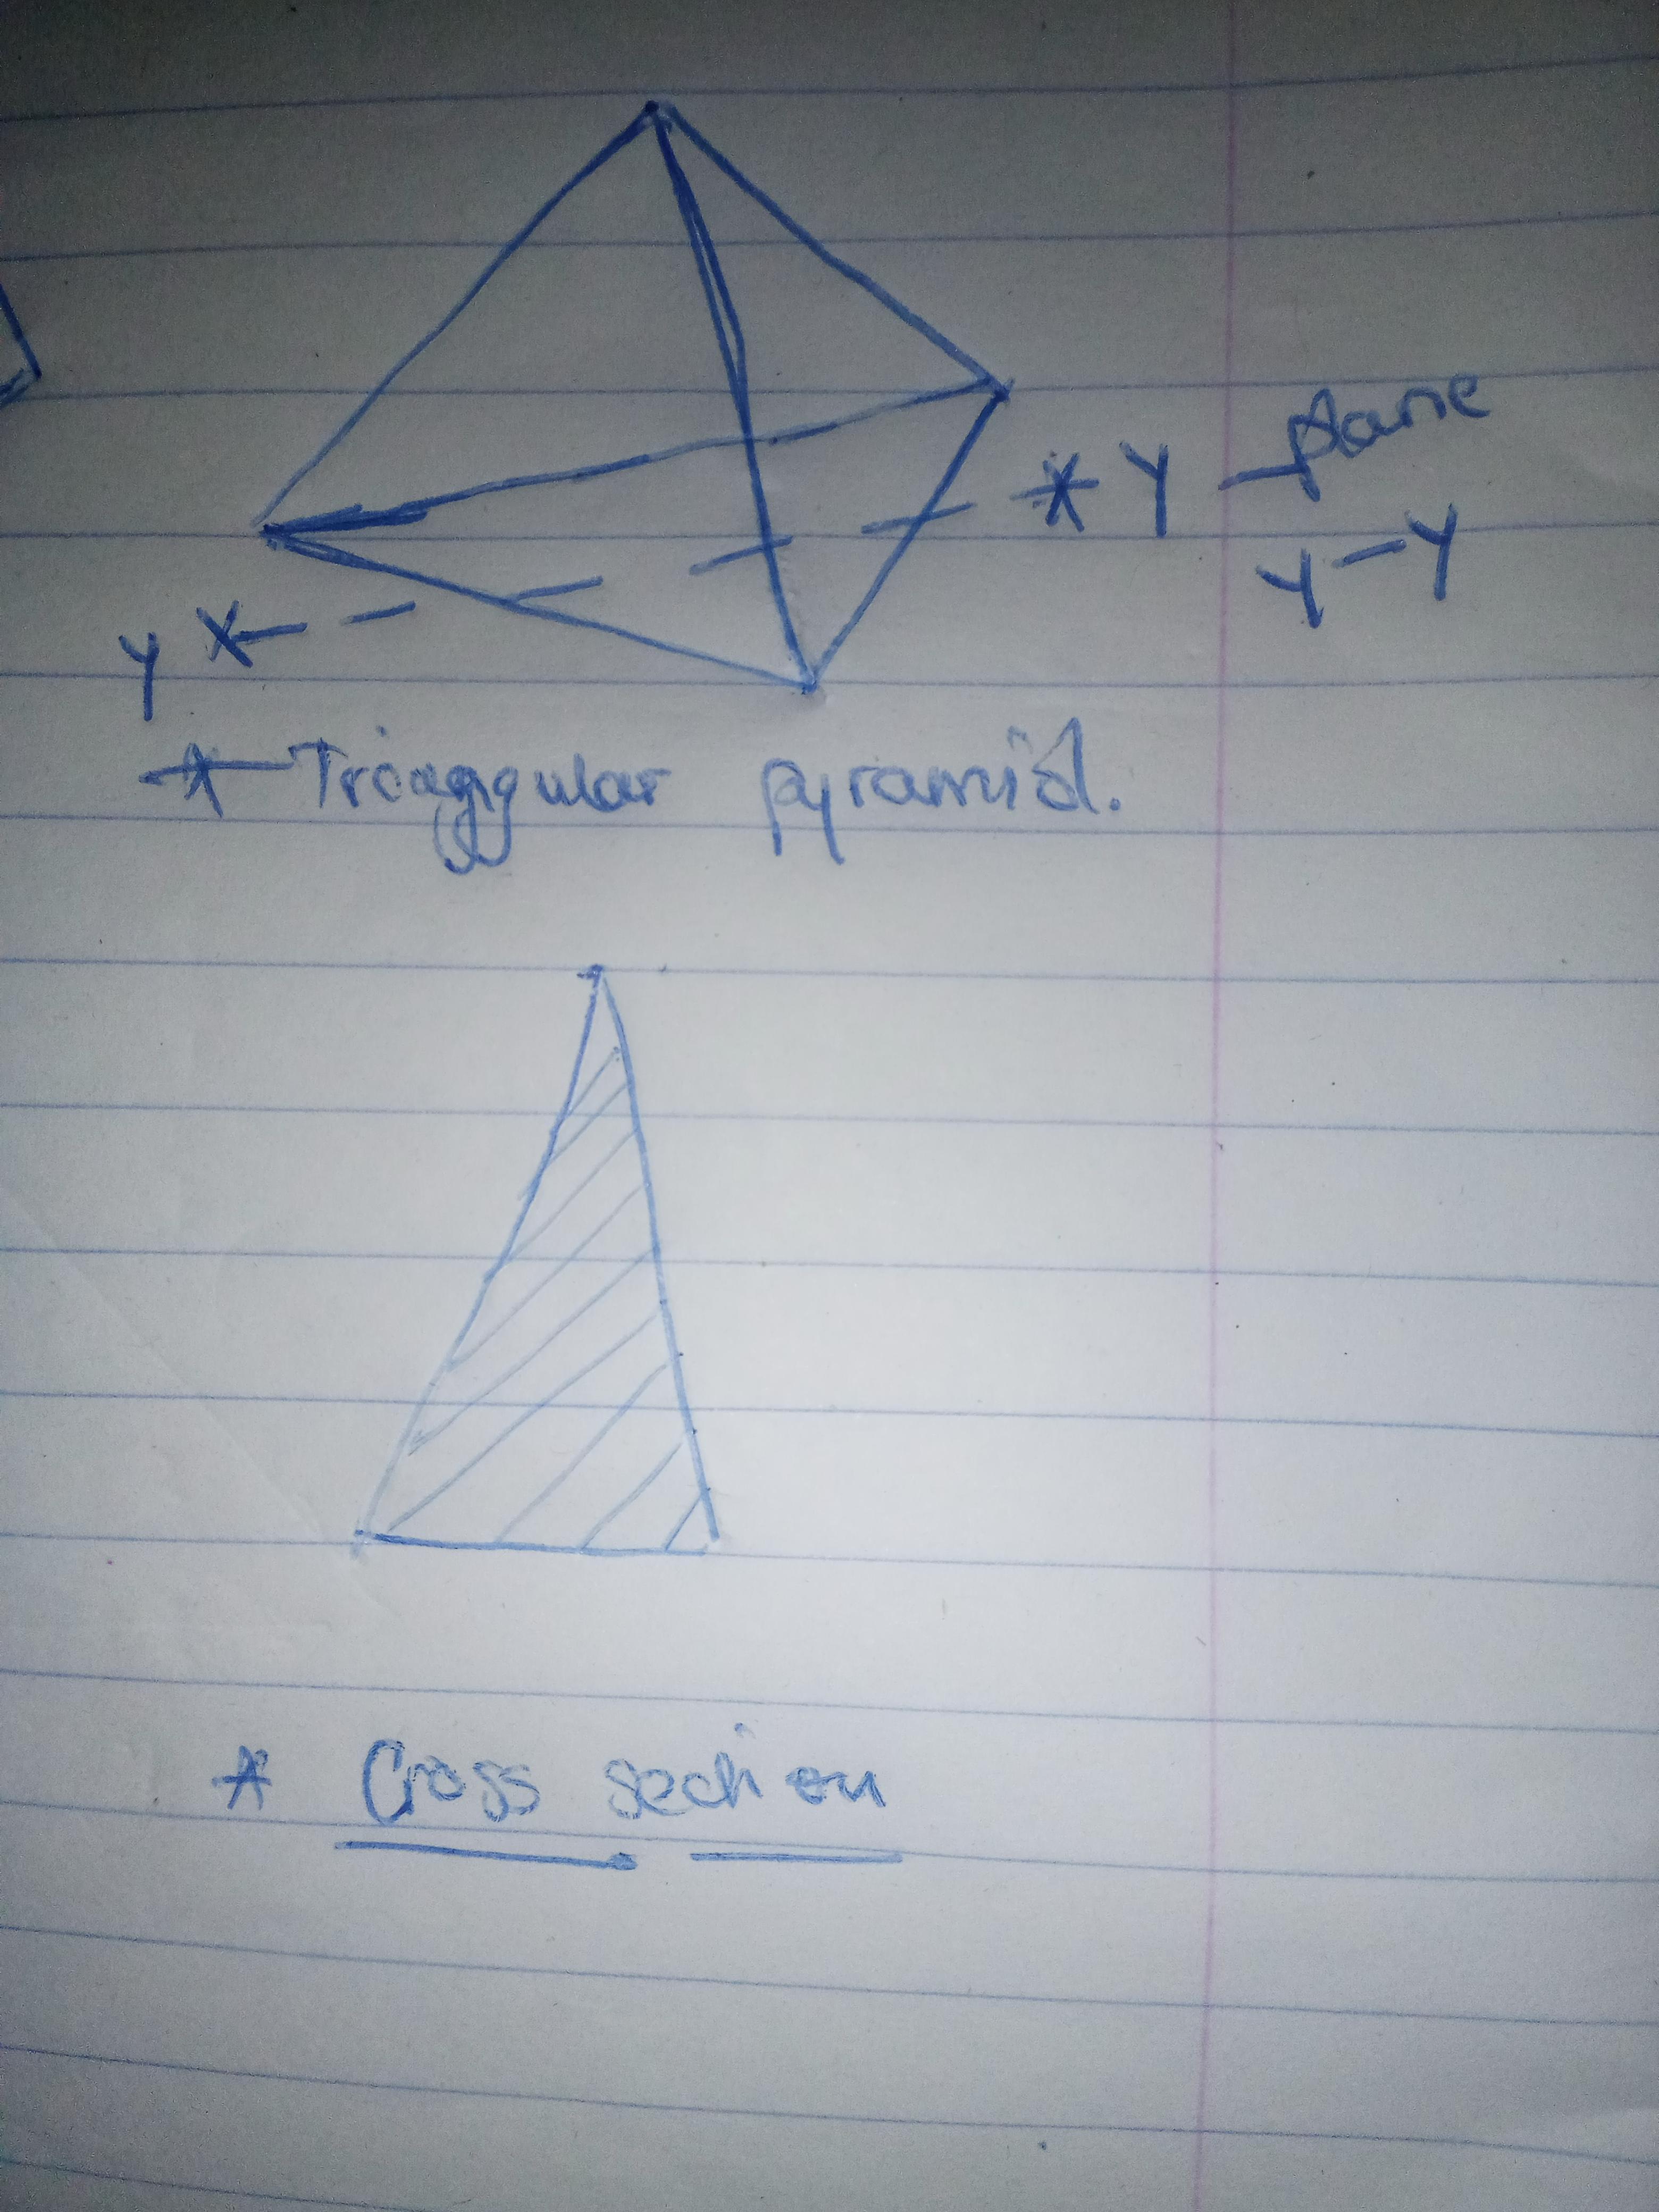 * Y - plane
Y - Y
Y X
* Triangular pyramid.
* Cross section